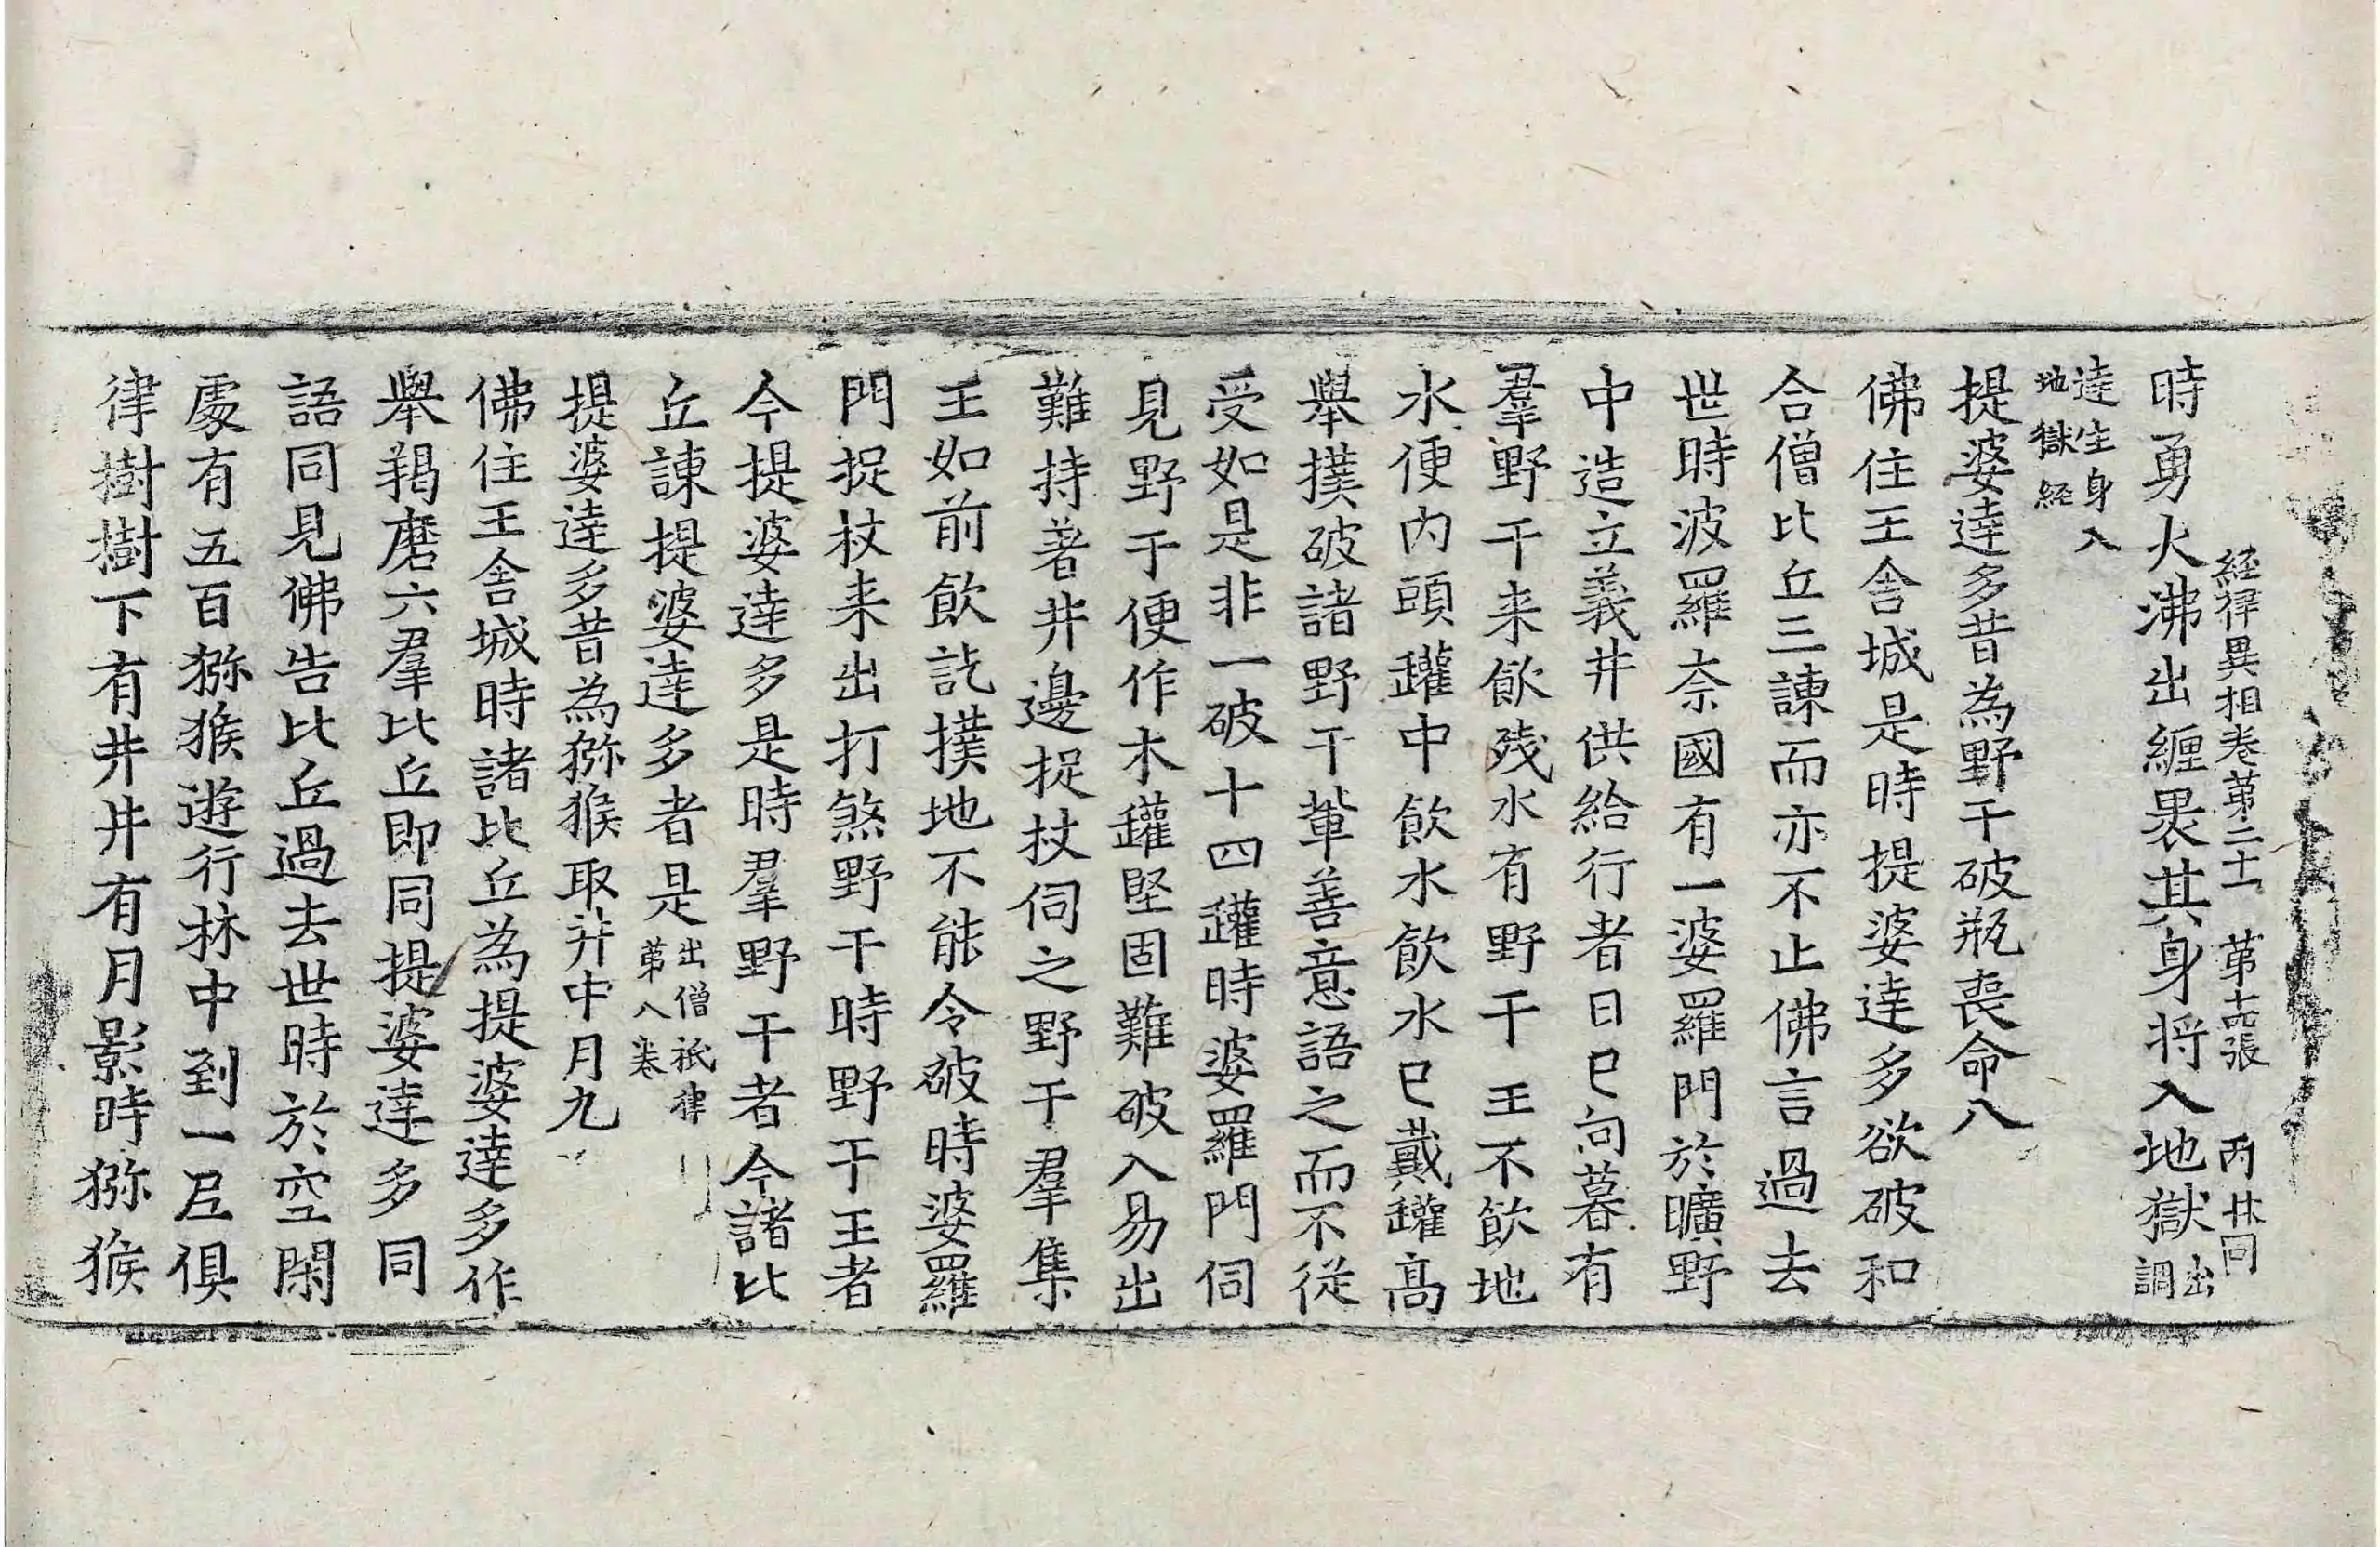 経律異相巻苐二十一 苐十六張 丙 林同
時勇火沸出纏褁其身将入地獄出調
達生身入地獄経
提婆達多昔為野干破瓶喪命八
佛住王舎城是時提婆達多欲破和
合僧比丘三諫而亦不止佛言過去
世時波羅奈國有一婆羅門於曠野
中造立義井供給行者日已向暮有
羣野干来飲殘水有野干王不飲地
水便内頭罐中飲水飲水已戴罐髙
舉撲破諸野干軰善意語之而不從
受如是非一破十四罐時婆羅門伺
見野干便作木罐堅固難破入易出
難持著井邊捉杖伺之野干羣集
王如前飲訖撲地不能令破時婆羅
門捉杖来出打煞野干時野干王者
今提婆達多是時羣野干者今諸比
丘諫提婆達多者是出僧祇律苐八巻
提婆達多昔為猕猴取井中月九
佛住王舎城時諸比丘為提婆達多作
舉羯磨六羣比丘即同提婆達多同
語同見佛告比丘過去世時於空閑
處有五百猕猴遊行林中到一尼俱
律樹樹下有井井有月影時猕猴